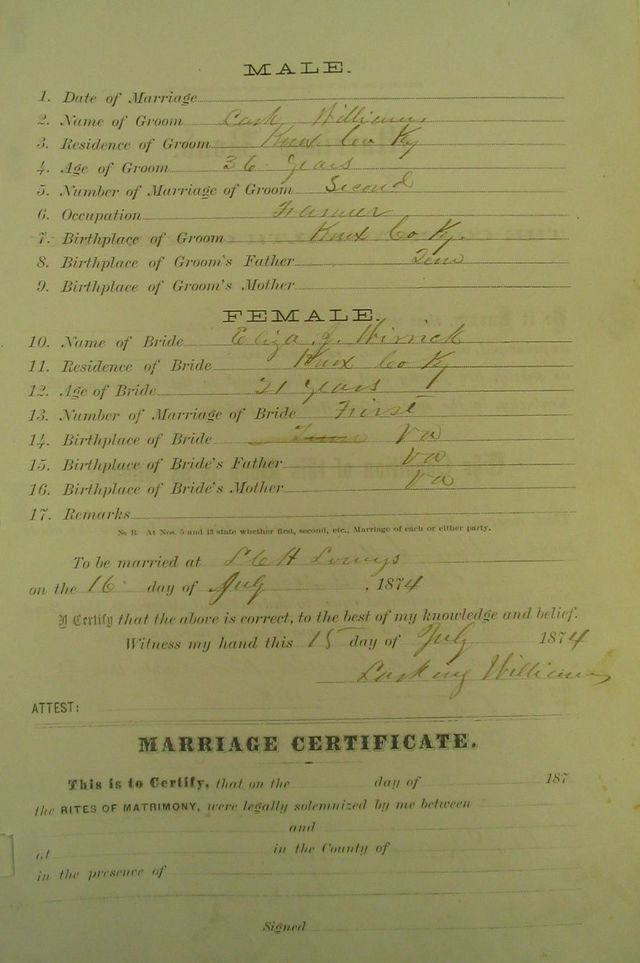 MALE.
1. Date of Marriage
2. Name of Groom Lark Williams
3. Residence of Groom Knox Co Ky
4. Age of Groom 36 years
5. Number of Marriage of Groom Second
6. Occupation Farmer
7. Birthplace of Groom Knox Co Ky.
8. Birthplace of Groom's Father Tenn
9. Birthplace of Groom's Mother
FEMALE.
10. Name of Bride Eliza J. Wirrick
11. Residence of Bride Knox Co Ky
12. Age of Bride 21 years
13. Number of Marriage of Bride First
14. Birthplace of Bride Va
15. Birthplace of Bride's Father Va
16. Birthplace of Bride's Mother Va
17. Remarks
N. B. At Nos. 5 and 13 state whether first, second, etc., Marriage of each or either party.
To be married at
on the 16 day of July, 1874
I Certify that the above is correct, to the best of my knowledge and belief.
Witness my hand this 15 day of July 1874
Larking Williams
ATTEST:
MARRIAGE CERTIFICATE.
This is to Certify, that on the day of 187
the RITES OF MATRIMONY, were legally solemnized by me between
and
at in the County of
in the presence of
Signed